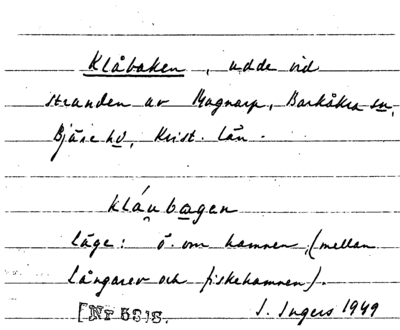 Klåbaken, udde vid
stranden av Magnarp, Barkåkra sn,
Bjäre hd, Krist. län.
kláubagen
läge: ö. om hamnen, (mellan
långarev och fiskehamnen).
[Nr 5818. I. Ingers 1949